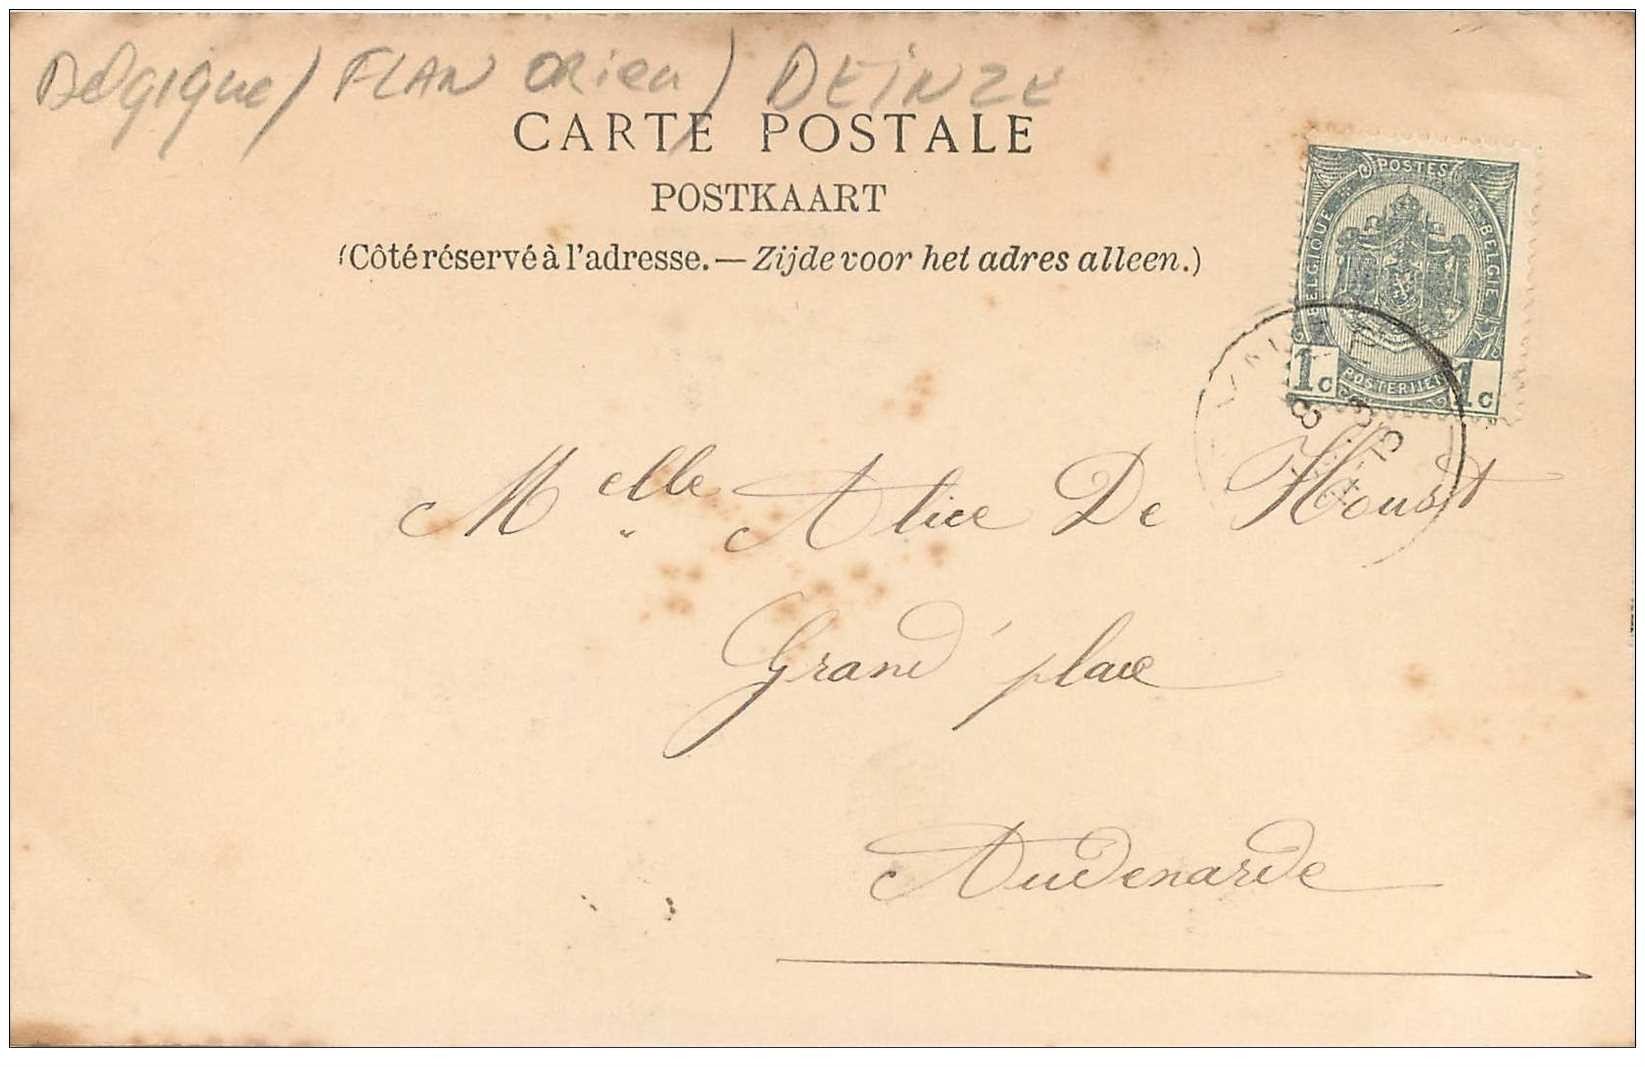 Belgique / FLAN ORieN / DEiNZE
CARTE POSTALE
POSTKAART
(Côté réservé à l'adresse. — Zijde voor het adres alleen.)
POSTES
BELGIQUE BELGIE
1c POSTERIJEN 1c
Melle Alice De Houst
Grand' place
Audenarde